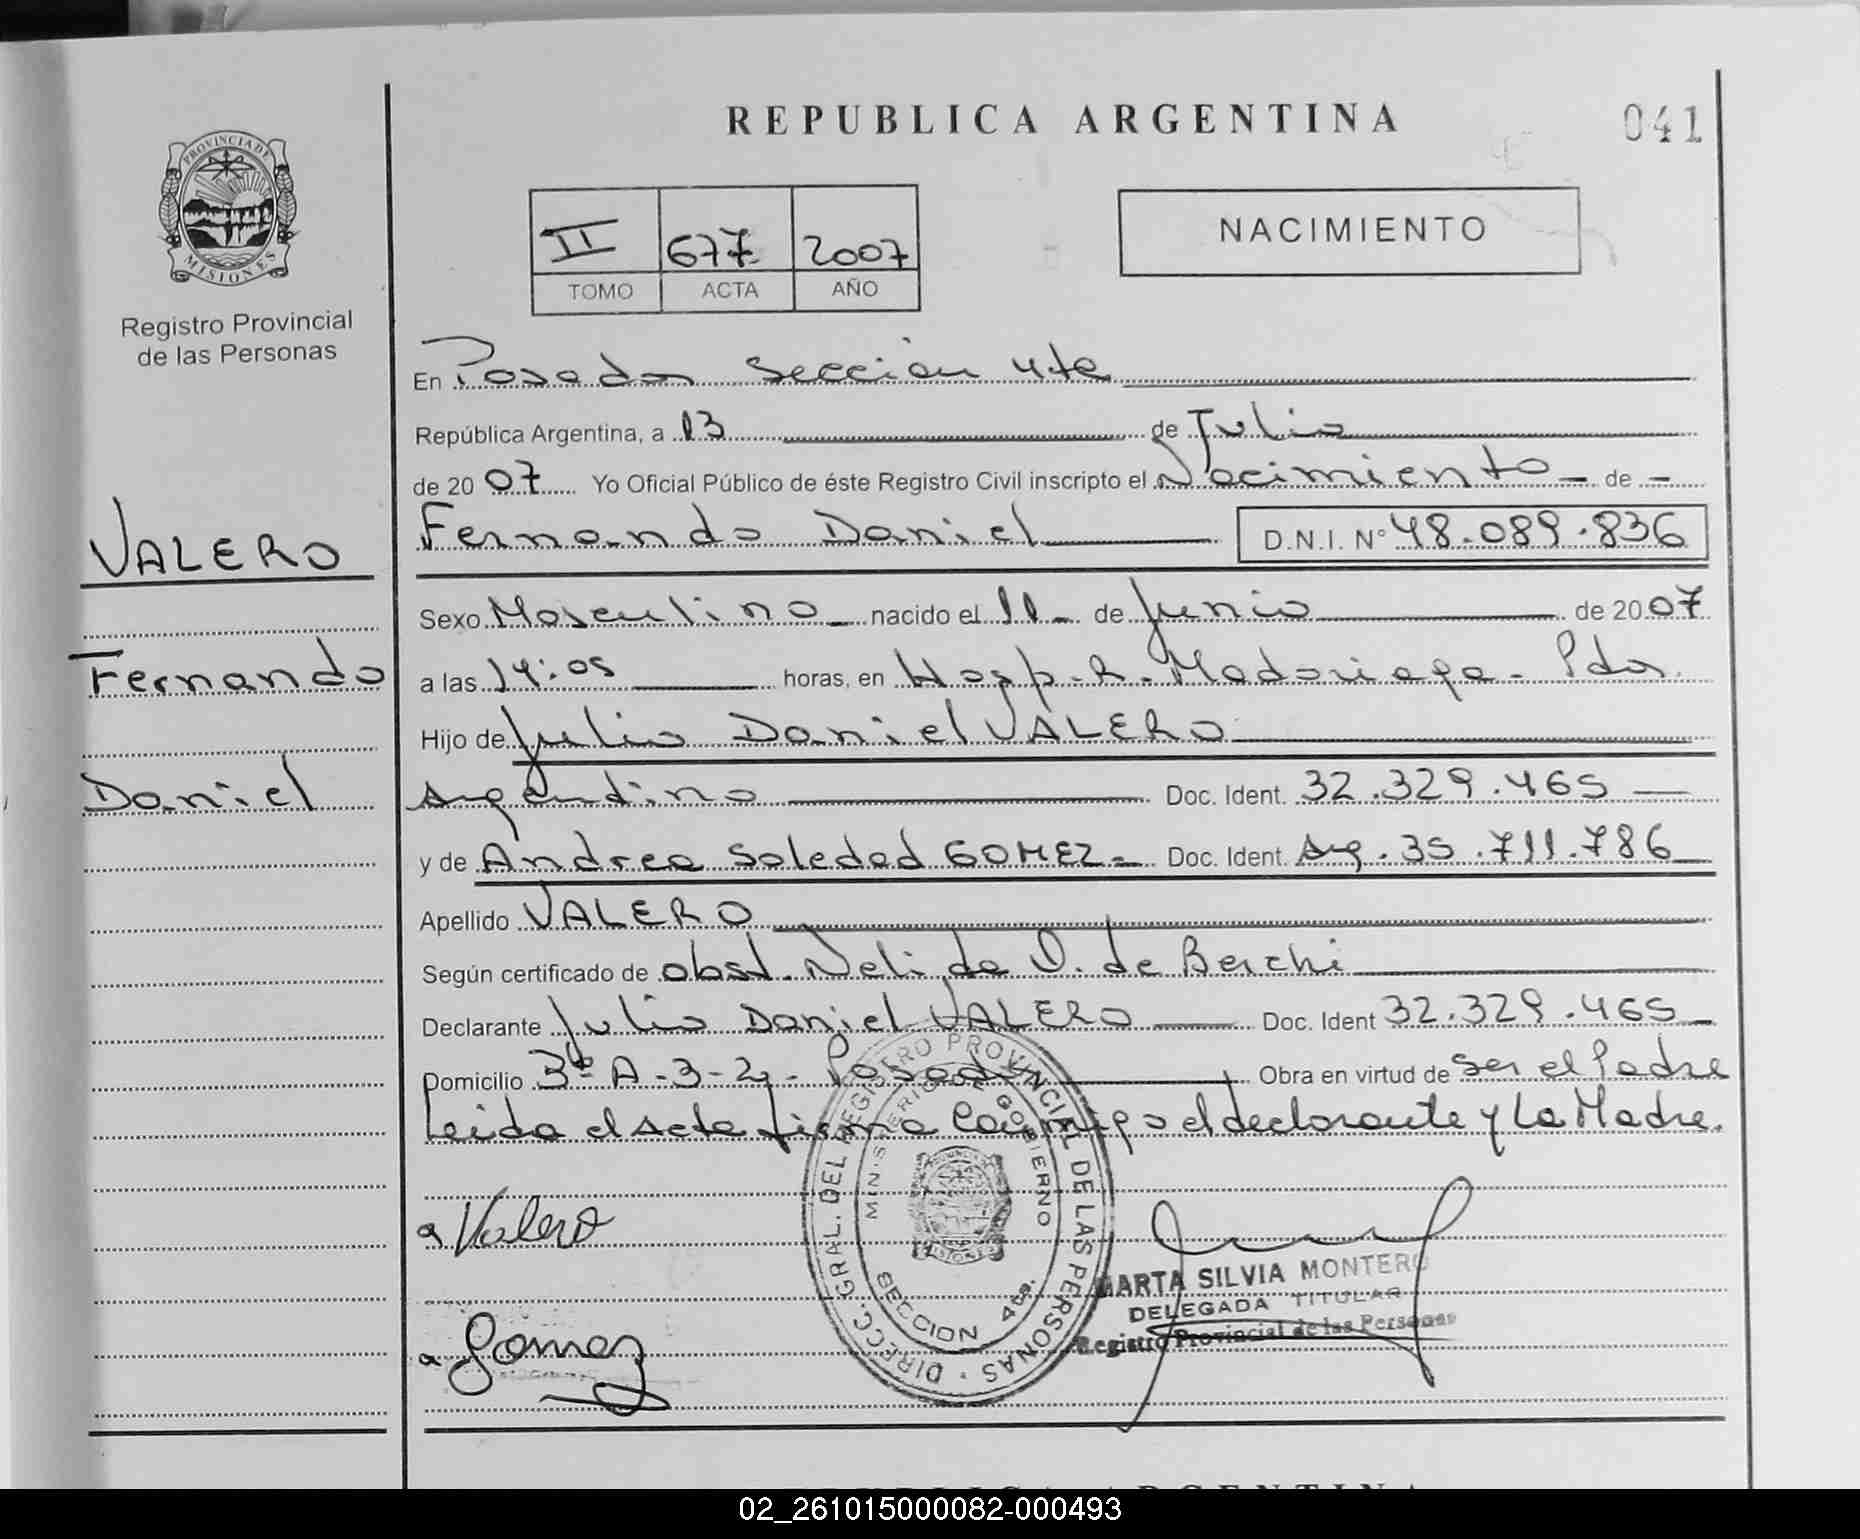 REPUBLICA ARGENTINA
041
PROVINCIA DE
MISIONES
Registro Provincial
de las Personas
II 677 2007
TOMO ACTA AÑO
NACIMIENTO
En Posadas Sección 4ta
República Argentina, a 13 de Julio
de 2007 Yo Oficial Público de éste Registro Civil inscripto el Nacimiento - de -
Fernando Daniel D.N.I. N° 48.089.836
VALERO
Fernando
Daniel
Sexo Masculino nacido el 11 - de Junio de 2007
a las 14:05 horas, en Hosp. R. Madariaga - Pdas.
Hijo de Julio Daniel VALERO
Argentino Doc. Ident. 32.329.465
y de Andrea Soledad GOMEZ - Doc. Ident. Arg. 35.711.786
Apellido VALERO
Según certificado de obst. Nelida O. de Berchi
Declarante Julio Daniel VALERO Doc. Ident 32.329.465
Domicilio 3º A - 3 - 2 - Posadas Obra en virtud de ser el Padre
Leida el acta firma conmigo el declarante y la Madre.
a Valero
a Gomez
DIRECC. GRAL. DEL REGISTRO PROVINCIAL DE LAS PERSONAS
MINISTERIO DE GOBIERNO
SECCION 4ta.
MISIONES
MARTA SILVIA MONTERO
DELEGADA TITULAR
Registro Provincial de las Personas
REPUBLICA ARGENTINA
02_261015000082-000493